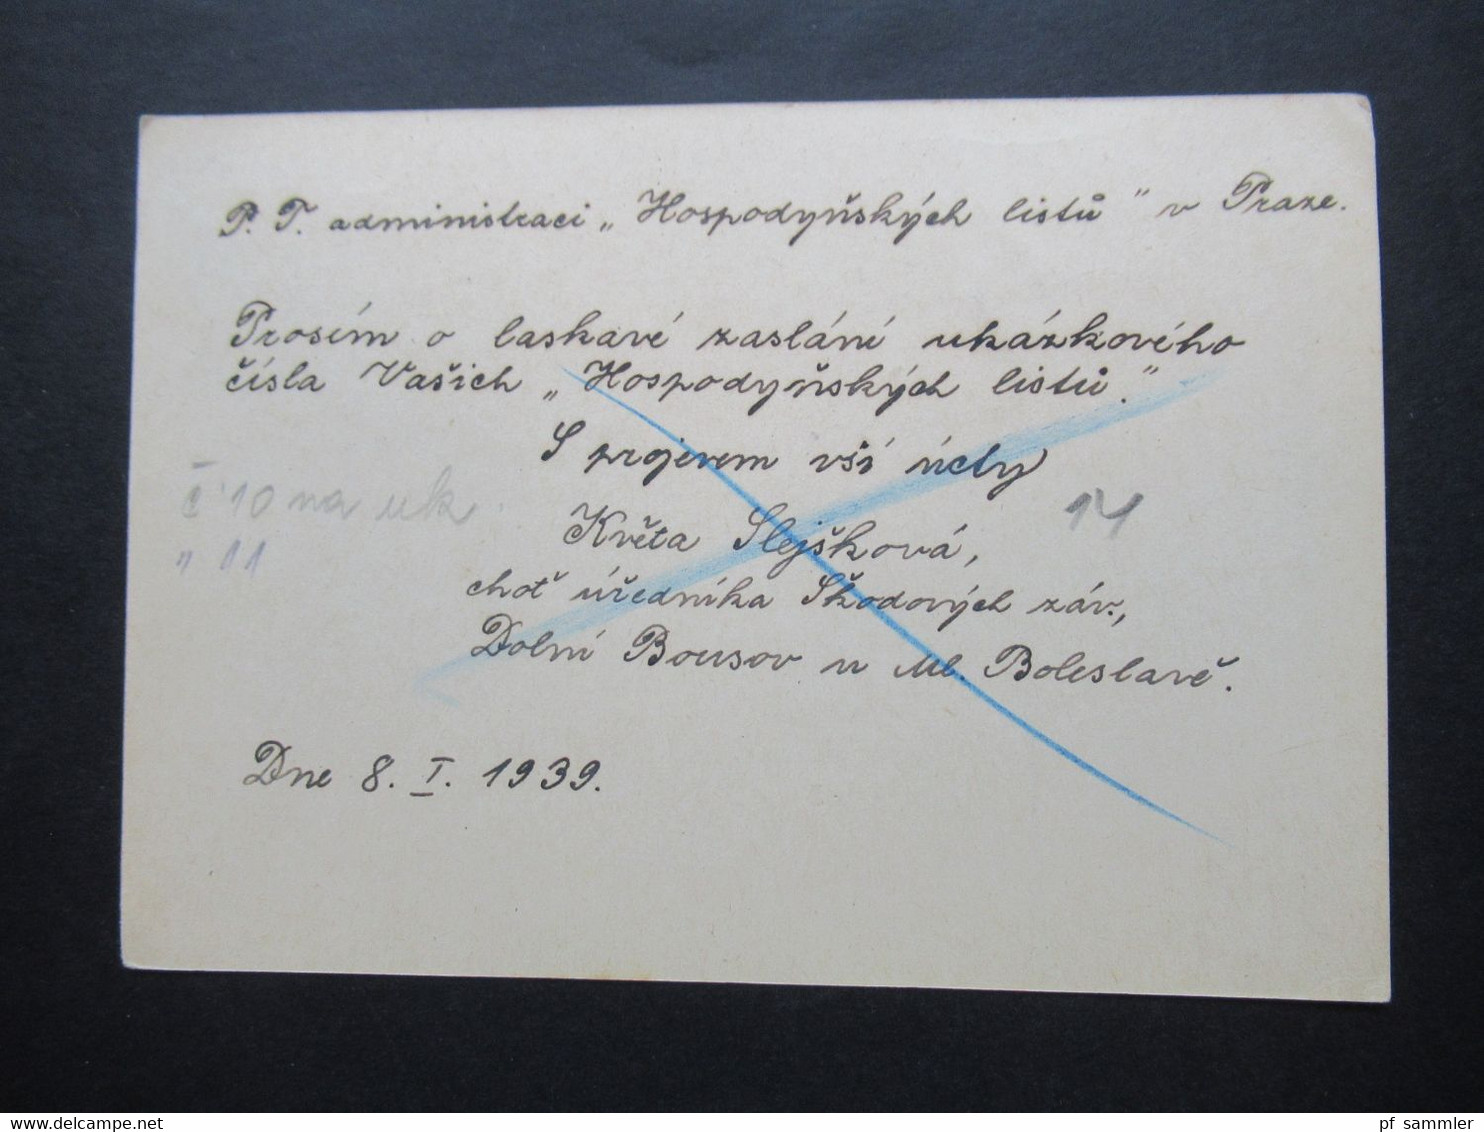 P. T. administraci „Hospodyňských listů" v Praze.
Prosím o laskavé zaslání ukázkového
čísla Vašich „Hospodyňských listů."
S projevem vší úcty
č 10 na uk
14
Květa Slejšková,
" 11
choť úředníka Škodových záv.,
Dolní Bousov u Ml. Boleslavě.
Dne 8. I. 1939.
delcampe.net
pf_sammler